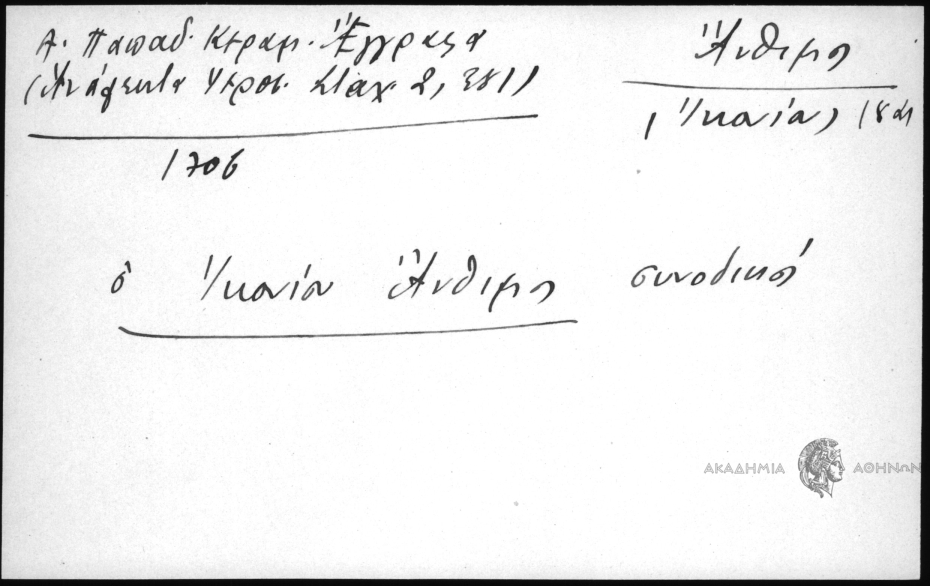 Α. Παπαδ. Κεραμ. Ἔγγραφα
(Ἀνάλεκτα Ἱεροσ. Σταχ. 2, 381)
1706
Ἄνθιμος
Ἰκονίου
ὁ Ἰκονίου Ἄνθιμος συνοδικός
ΑΚΑΔΗΜΙΑ ΑΘΗΝΩΝ